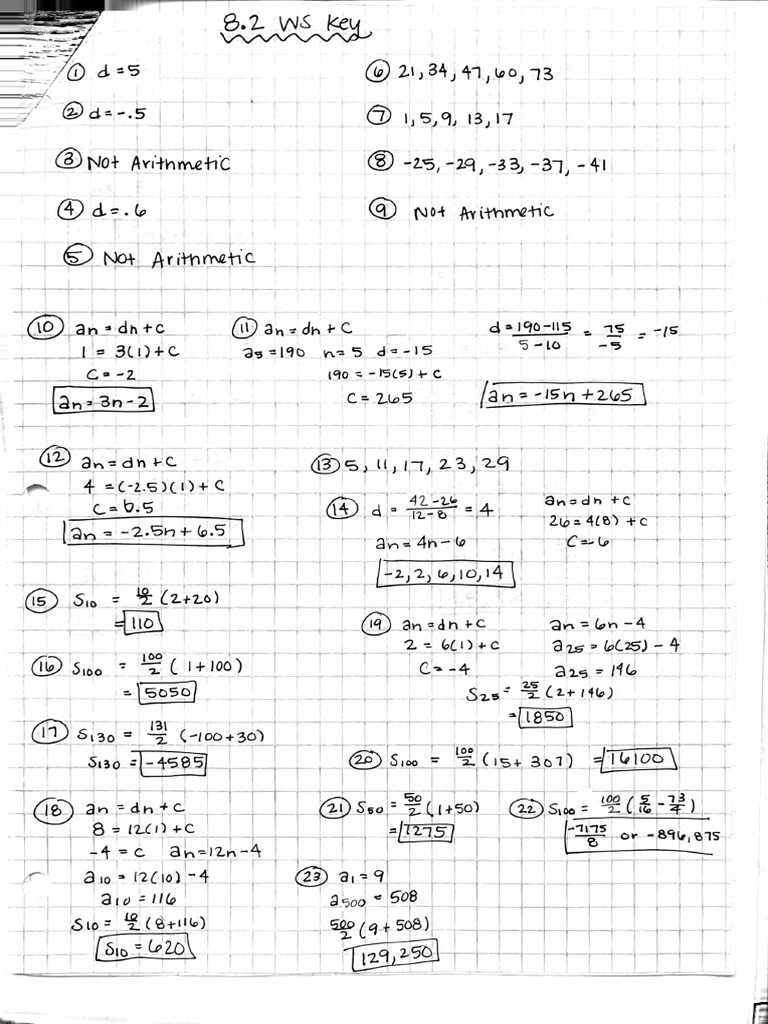 8.2 WS Key
① d = 5
② d = -.5
③ Not Arithmetic
④ d = .6
⑤ Not Arithmetic
⑥ 21, 34, 47, 60, 73
⑦ 1, 5, 9, 13, 17
⑧ -25, -29, -33, -37, -41
⑨ Not Arithmetic
⑩ an = dn + c
1 = 3(1) + c
c = -2
an = 3n - 2
⑪ an = dn + c
a5 = 190 n = 5 d = -15
190 = -15(5) + c
c = 265
d = 190-115/5-10 = 75/-5 = -15
an = -15n + 265
⑫ an = dn + c
4 = (-2.5)(1) + c
c = 6.5
an = -2.5n + 6.5
⑬ 5, 11, 17, 23, 29
⑭ d = 42-26/12-8 = 4
an = 4n - 6
-2, 2, 6, 10, 14
an = dn + c
26 = 4(8) + c
c = -6
⑮ S10 = 10/2 (2+20)
= 110
⑯ S100 = 100/2 (1+100)
= 5050
⑰ S130 = 131/2 (-100+30)
S130 = -4585
⑱ an = dn + c
8 = 12(1) + c
-4 = c an = 12n - 4
a10 = 12(10) - 4
a10 = 116
S10 = 10/2 (8+116)
S10 = 620
⑲ an = dn + c
2 = 6(1) + c
c = -4
an = 6n - 4
a25 = 6(25) - 4
a25 = 146
S25 = 25/2 (2+146)
= 1850
⑳ S100 = 100/2 (15 + 307) = 16100
㉑ S50 = 50/2 (1+50)
= 1275
㉒ S100 = 100/2 (5/16 - 73/4)
-7175/8 or -896,875
㉓ a1 = 9
a500 = 508
500/2 (9 + 508)
129,250